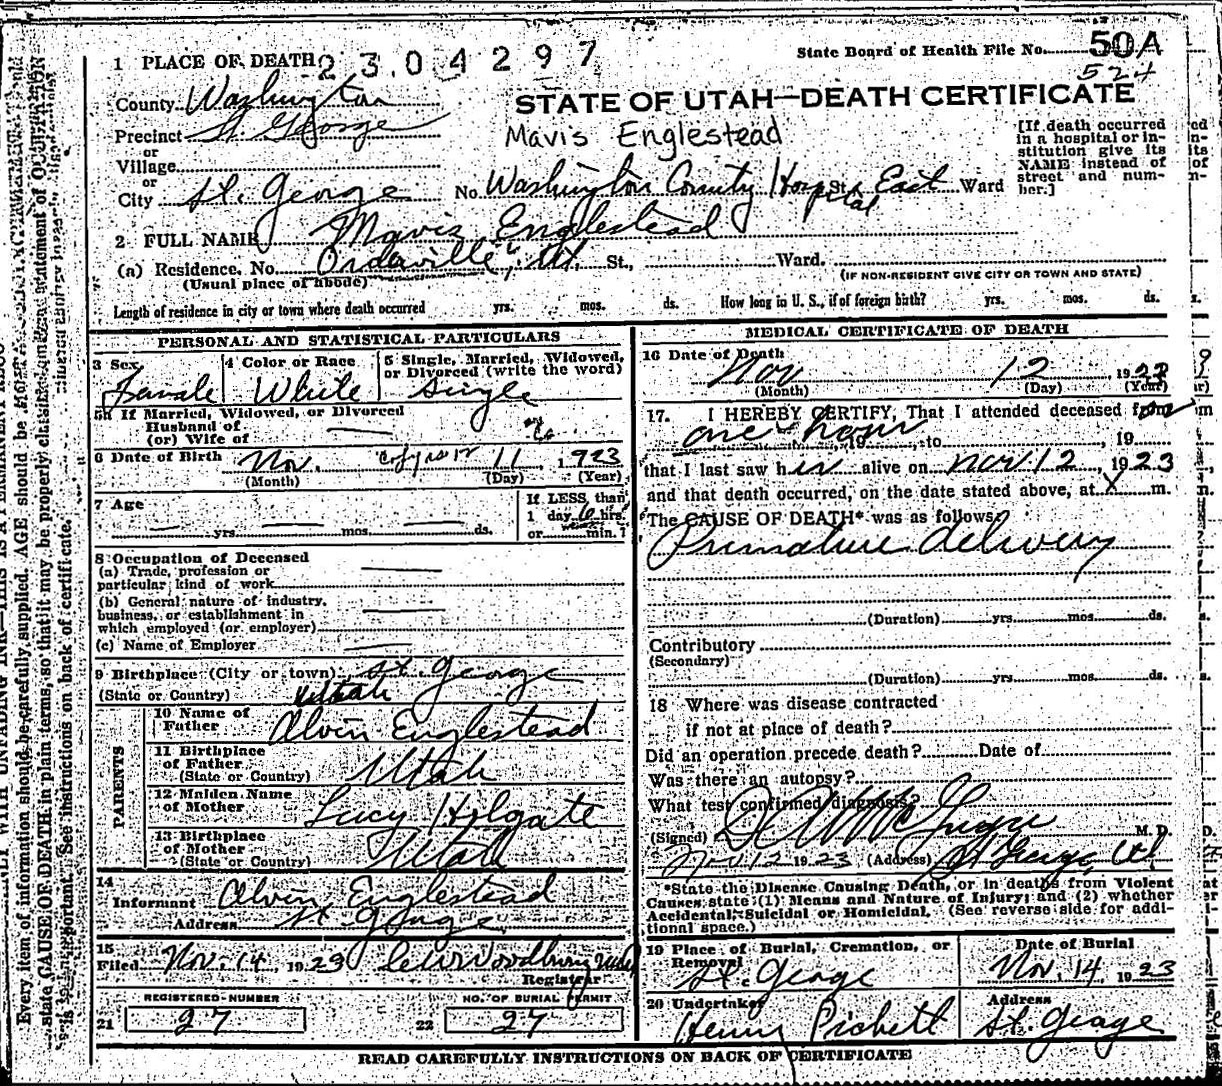 1 PLACE OF DEATH 2304297 State Board of Health File No. 50A
524
County Washington
STATE OF UTAH—DEATH CERTIFICATE
Precinct St. George
Mavis Englestead
[If death occurred in a hospital or institution give its NAME instead of street and number.]
or
Village
or
City St. George No. Washington County Hospital St. East Ward
2 FULL NAME Mavis Englestead
(a) Residence. No. Orderville, Ut. St., Ward.
(Usual place of abode) (IF NON-RESIDENT GIVE CITY OR TOWN AND STATE)
Length of residence in city or town where death occurred yrs. mos. ds. How long in U. S., if of foreign birth? yrs. mos. ds.
PERSONAL AND STATISTICAL PARTICULARS
3 Sex 4 Color or Race 5 Single, Married, Widowed, or Divorced (write the word)
Female White Single
5a If Married, Widowed, or Divorced
Husband of
(or) Wife of
6 Date of Birth Nov. 11, 1923
(Month) (Day) (Year)
7 Age yrs mos. ds. If LESS than 1 day 6 hrs. or min.?
8 Occupation of Deceased
(a) Trade, profession or
particular kind of work
(b) General nature of industry,
business, or establishment in
which employed (or employer)
(c) Name of Employer
9 Birthplace (City or town) St. George
(State or Country) Utah
PARENTS
10 Name of Father Alvin Englestead
11 Birthplace of Father Utah
(State or Country)
12 Maiden Name of Mother Lucy Hilgate
13 Birthplace of Mother Utah
(State or Country)
14 Informant Alvin Englestead
Address St. George
15 Filed Nov. 14 1923 Registrar
REGISTERED NUMBER NO. OF BURIAL PERMIT
21 27 22 27
MEDICAL CERTIFICATE OF DEATH
16 Date of Death Nov 12 1923
(Month) (Day) (Year)
17. I HEREBY CERTIFY, That I attended deceased for
one hour 19 to , 19
that I last saw her alive on Nov 12, 1923
and that death occurred, on the date stated above, at X m.
The CAUSE OF DEATH* was as follows:
Premature delivery
(Duration) yrs. mos. ds.
Contributory
(Secondary)
(Duration) yrs. mos. ds.
18 Where was disease contracted
if not at place of death?
Did an operation precede death? Date of
Was there an autopsy?
What test confirmed diagnosis?
(Signed) McGregor M. D.
12 1923 (Address) St George, Ut
*State the Disease Causing Death, or in deaths from Violent
Causes state (1) Means and Nature of Injury; and (2) whether
Accidental, Suicidal or Homicidal. (See reverse side for additional space.)
19 Place of Burial, Cremation, or Removal Date of Burial
St. George Nov. 14 1923
20 Undertaker Address
Henry Pickett St. George
READ CAREFULLY INSTRUCTIONS ON BACK OF CERTIFICATE
Every item of information should be carefully supplied. AGE should be
state CAUSE OF DEATH in plain terms, so that it may be properly classified. statement of OCCUPATION
is important. See instructions on back of certificate.